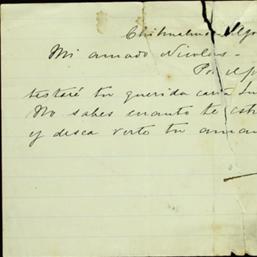 Chihuahua Ago
Mi amado Nicolas.
Por el
testaré tu querida carta
No sabes cuanto te est
y desea verte tu aman